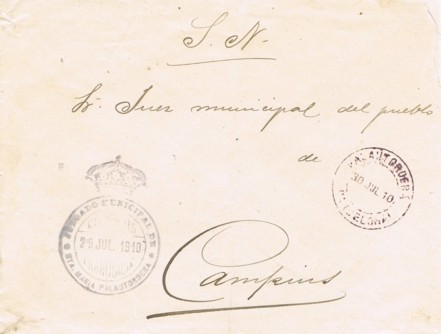 S. N.
Sr. Juez municipal del pueblo
de
Campins
JUZGADO MUNICIPAL DE
SANTA MARIA PALAUTORDERA
29 JUL. 1910
PALAUTORDERA
30 JUL 10
BARCELONA